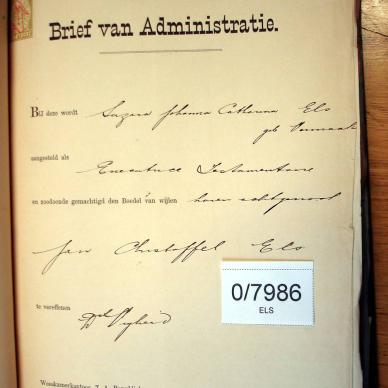 Brief van Administratie.
Bij deze wordt Suzara Johanna Catharina Els
geb Vermaak
aangesteld als Executrice Testamentaire
en zoodoende gemachtigd den Boedel van wijlen haren echtgenoot
Jan Christoffel Els
te vereffenen
Dt Vryheid
0/7986
ELS
Weeskamerkantoor, Z. A. Republiek